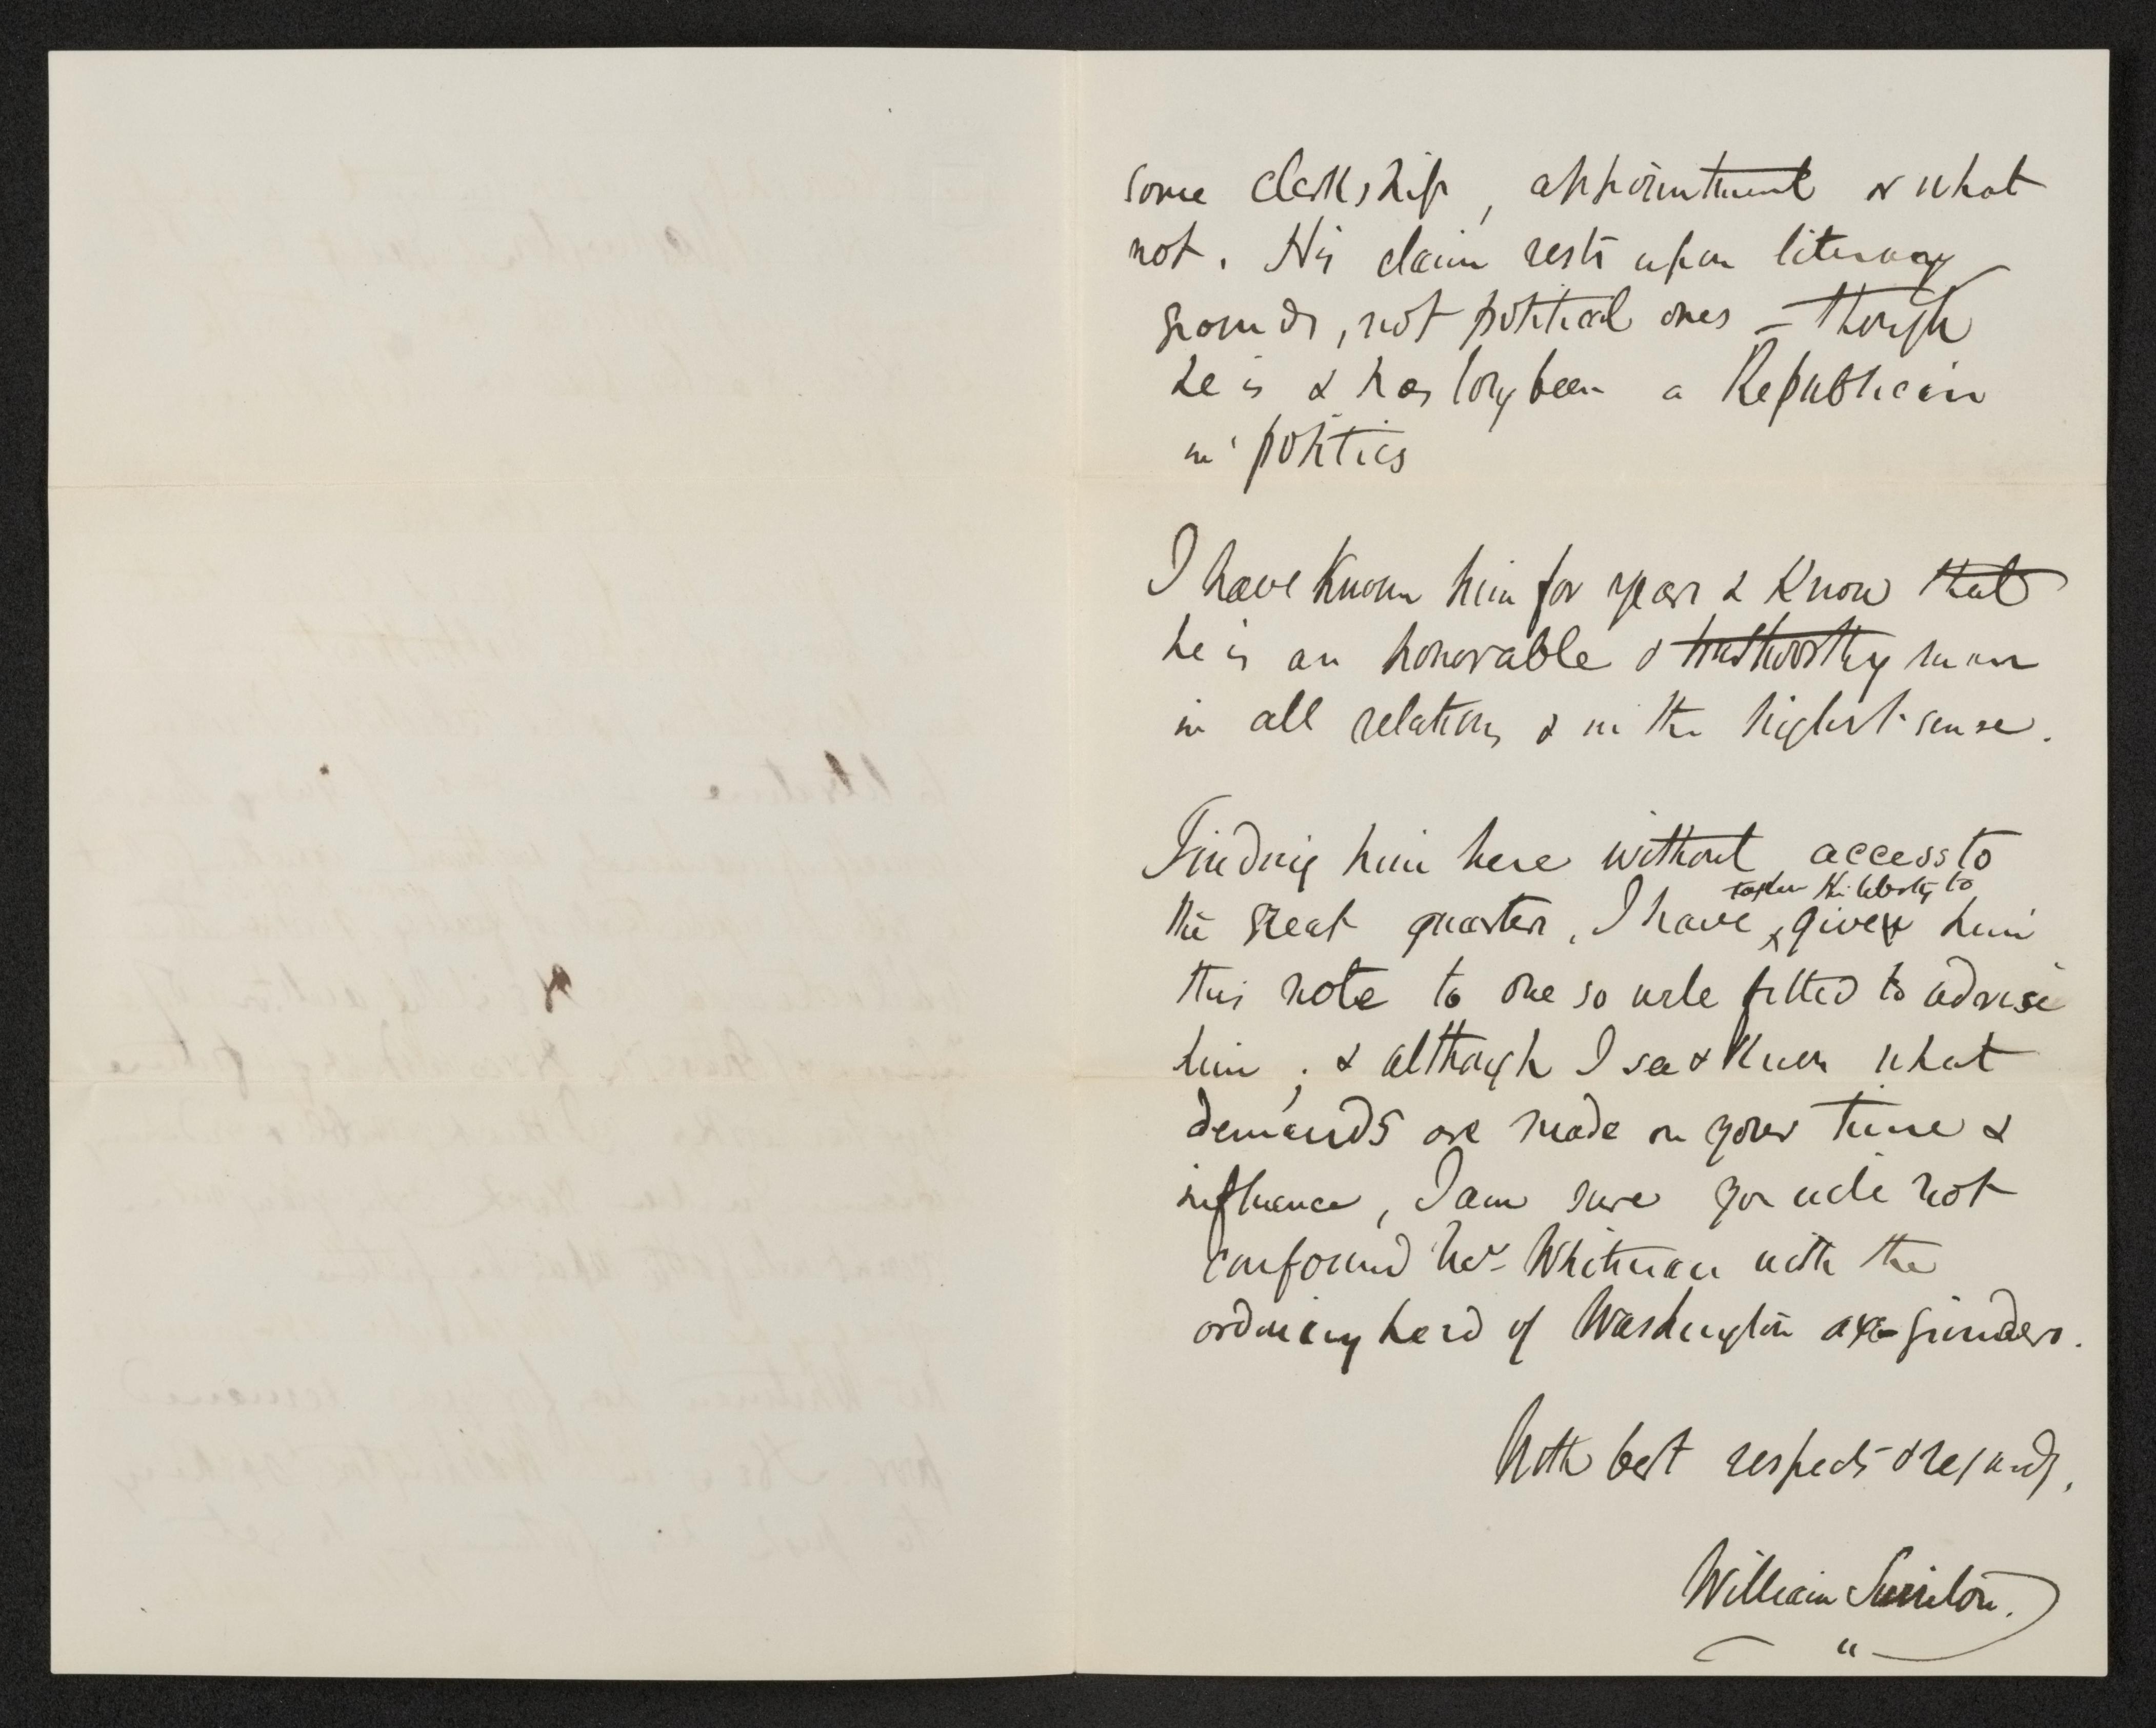 some clerkship, appointment or what
not. His claim rests upon literary
grounds, not political ones – though
he is & has long been a Republican
in politics
I have known him for years & know that
he is an honorable & trustworthy man
in all relations & in the highest sense.
Finding him here without access to
taken the liberty to
the great quarters, I have given him
this note to one so well fitted to advise
him ; & although I see & know what
demands are made on your time &
influence, I am sure you will not
confound Mr Whitman with the
ordinary herd of Washington axe-grinders.
With best respects & regards,
William Swinton.